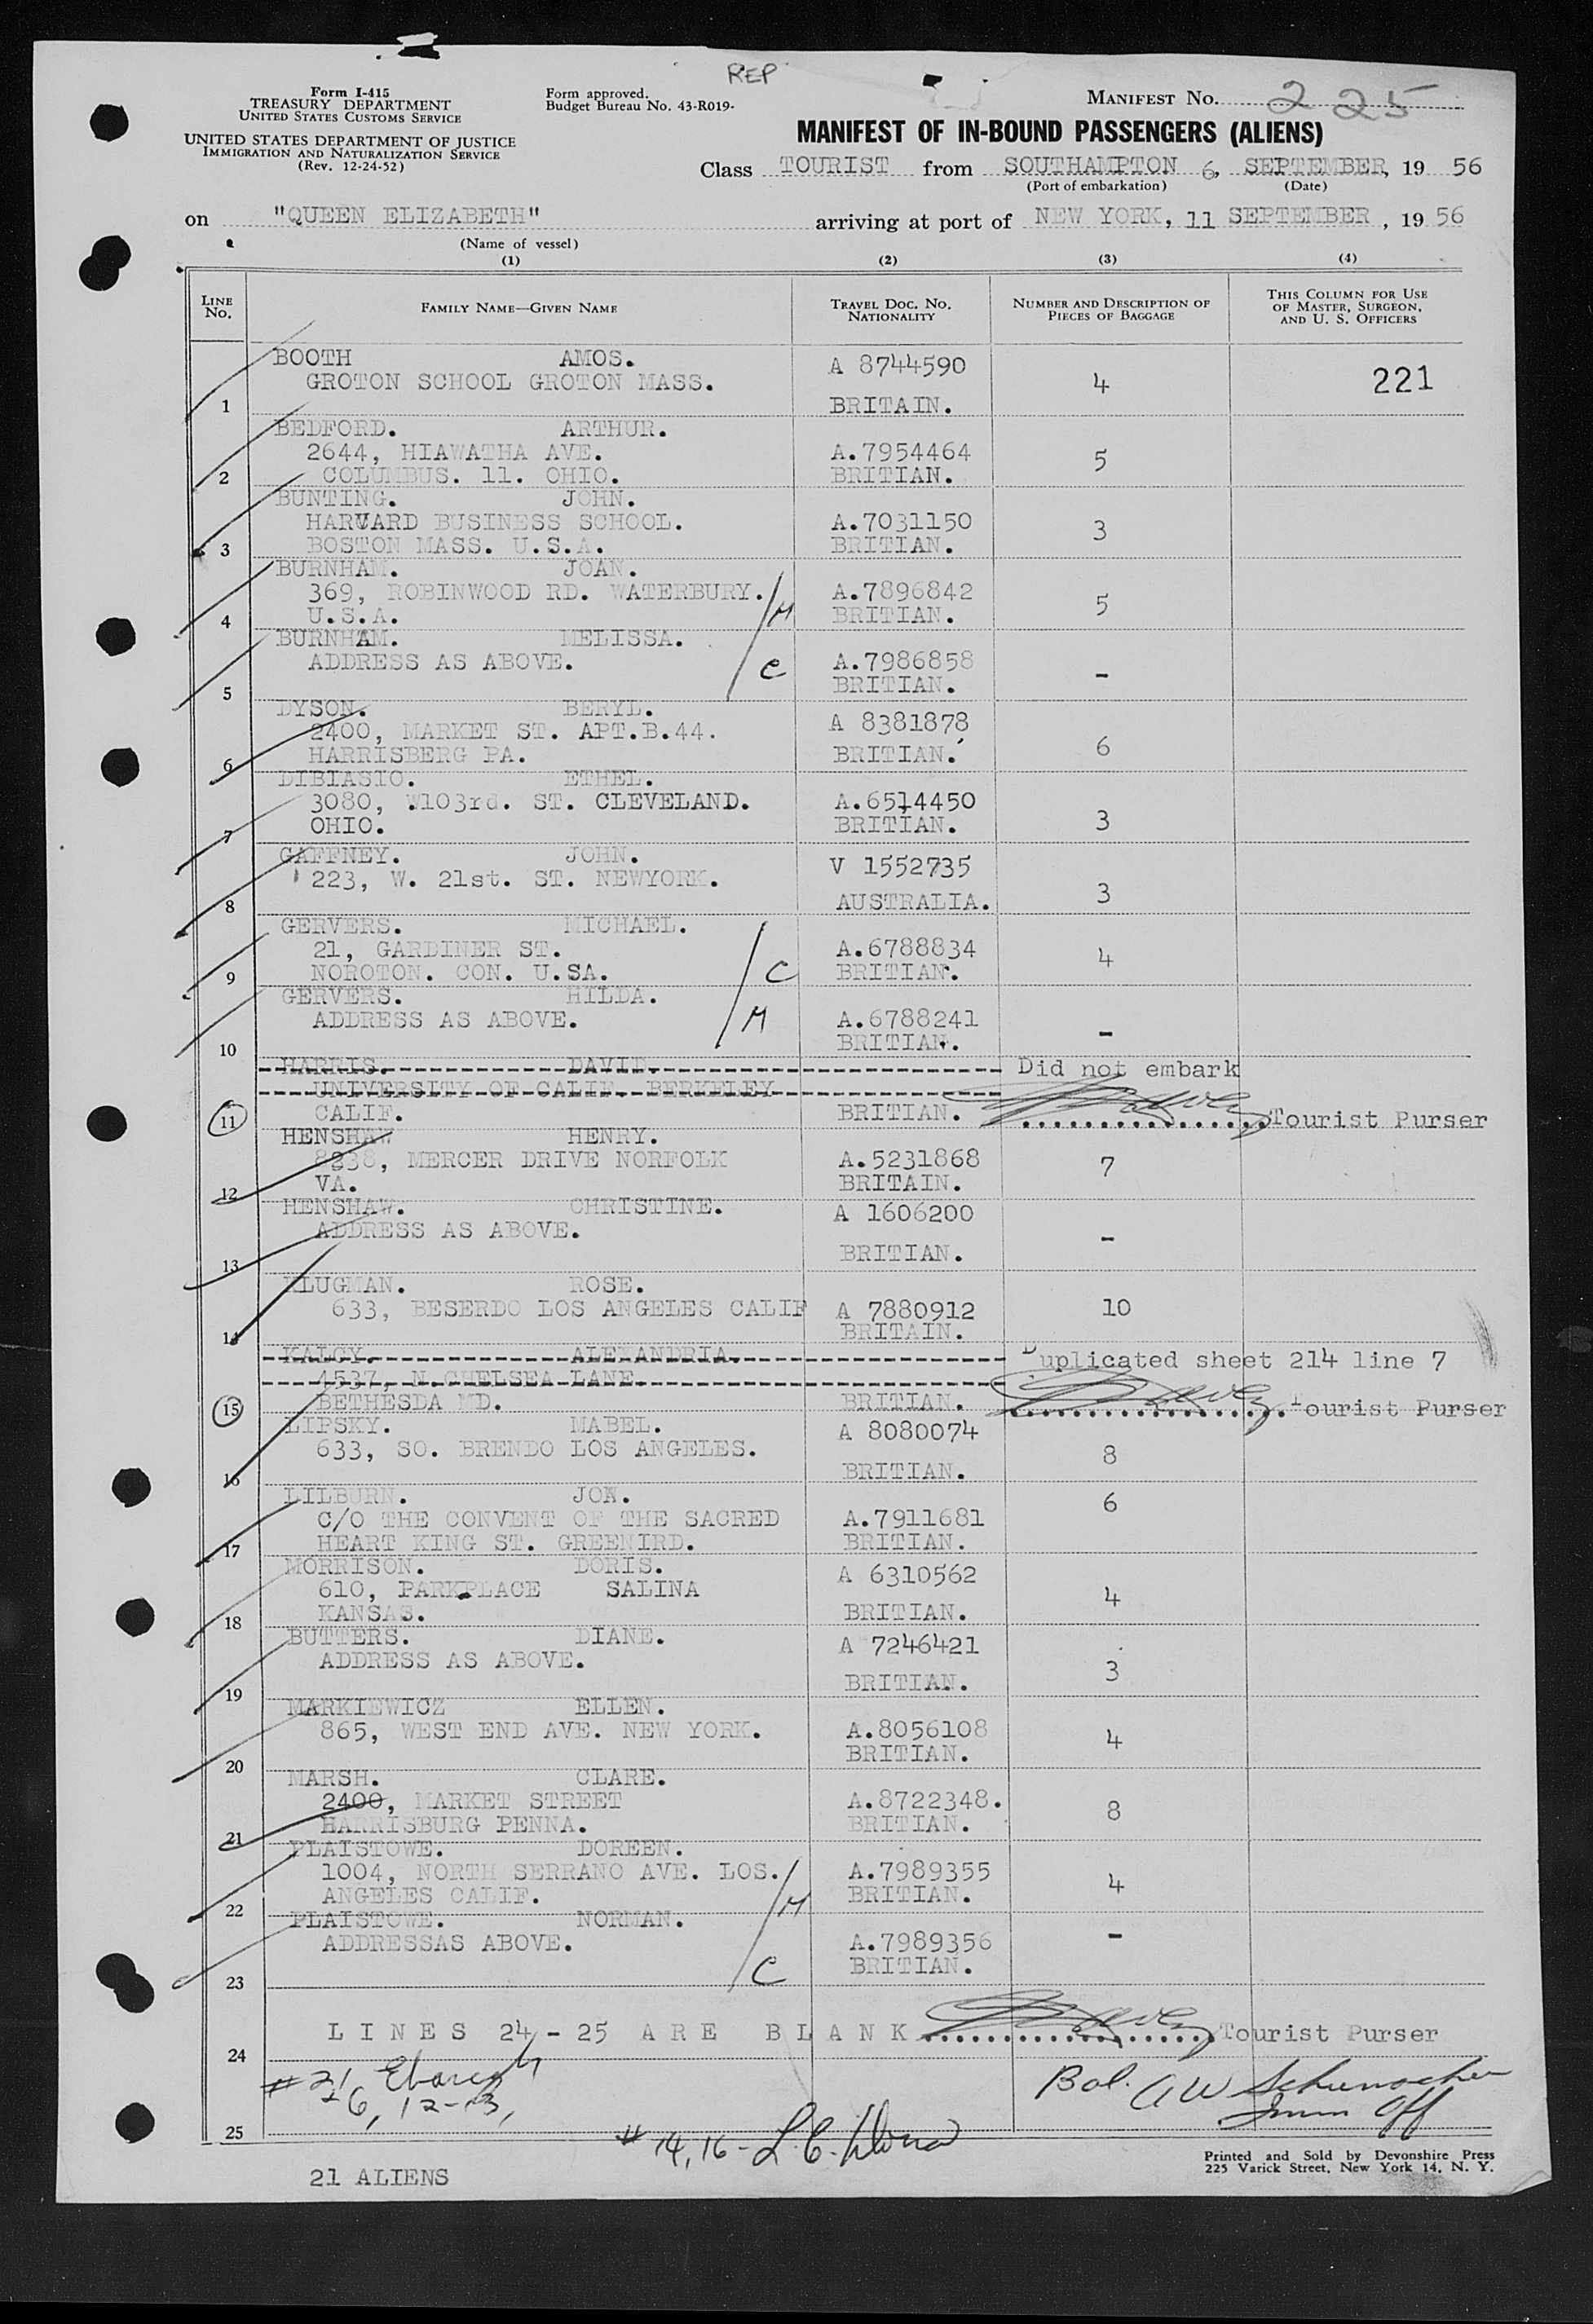 REP
Form I-415
TREASURY DEPARTMENT
UNITED STATES CUSTOMS SERVICE
UNITED STATES DEPARTMENT OF JUSTICE
IMMIGRATION AND NATURALIZATION SERVICE
(Rev. 12-24-52)
Form approved.
Budget Bureau No. 43-R019-
MANIFEST NO. 225
MANIFEST OF IN-BOUND PASSENGERS (ALIENS)
Class TOURIST from SOUTHAMPTON 6, SEPTEMBER, 19 56
(Port of embarkation) (Date)
on "QUEEN ELIZABETH" arriving at port of NEW YORK, 11 SEPTEMBER, 19 56
(Name of vessel)
(1) (2) (3) (4)
LINE NO. FAMILY NAME—GIVEN NAME TRAVEL DOC. NO. NATIONALITY NUMBER AND DESCRIPTION OF PIECES OF BAGGAGE THIS COLUMN FOR USE OF MASTER, SURGEON, AND U. S. OFFICERS
BOOTH AMOS. A 8744590
GROTON SCHOOL GROTON MASS. 4 221
1 BRITAIN.
BEDFORD. ARTHUR.
2644, HIAWATHA AVE. A.7954464 5
2 COLUMBUS. 11. OHIO. BRITIAN.
BUNTING. JOHN.
HARVARD BUSINESS SCHOOL. A.7031150 3
3 BOSTON MASS. U.S.A. BRITIAN.
BURNHAM. JOAN.
369, ROBINWOOD RD. WATERBURY. M A.7896842 5
4 U.S.A. BRITIAN.
BURNHAM. MELISSA.
ADDRESS AS ABOVE. C A.7986858 -
5 BRITIAN.
DYSON. BERYL.
2400, MARKET ST. APT.B.44. A 8381878
6 HARRISBERG PA. BRITIAN. 6
DIBIASIO. ETHEL.
3080, W103rd. ST. CLEVELAND. A.6514450
7 OHIO. BRITIAN. 3
GAFFNEY. JOHN. V 1552735
223, W. 21st. ST. NEWYORK.
8 AUSTRALIA. 3
GERVERS. MICHAEL.
21, GARDINER ST. A.6788834 4
9 NOROTON. CON. U.SA. C BRITIAN.
GERVERS. HILDA.
ADDRESS AS ABOVE. M A.6788241 -
10 BRITIAN.
HARRIS. DAVID. Did not embark
UNIVERSITY OF CALIF. BERKELEY
11 CALIF. BRITIAN. Tourist Purser
HENSHAW HENRY.
8238, MERCER DRIVE NORFOLK A.5231868 7
12 VA. BRITAIN.
HENSHAW. CHRISTINE. A 1606200
ADDRESS AS ABOVE. -
13 BRITIAN.
KLUGMAN. ROSE.
633, BESERDO LOS ANGELES CALIF A 7880912 10
14 BRITAIN.
KALCY. ALEXANDRIA. Duplicated sheet 214 line 7
4537, N.CHELSEA LANE.
15 BETHESDA MD. BRITIAN. Tourist Purser
LIPSKY. MABEL. A 8080074
633, SO. BRENDO LOS ANGELES. 8
16 BRITIAN.
LILBURN. JON. 6
C/O THE CONVENT OF THE SACRED A.7911681
17 HEART KING ST. GREENIRD. BRITIAN.
MORRISON. DORIS. A 6310562
610, PARKPLACE SALINA 4
18 KANSAS. BRITIAN.
BUTTERS. DIANE. A 7246421
ADDRESS AS ABOVE. 3
19 BRITIAN.
MARKIEWICZ ELLEN.
865, WEST END AVE. NEW YORK. A.8056108 4
20 BRITIAN.
MARSH. CLARE.
2400, MARKET STREET A.8722348. 8
21 HARRISBURG PENNA. BRITIAN.
PLAISTOWE. DOREEN.
1004, NORTH SERRANO AVE. LOS. A.7989355 4
22 ANGELES CALIF. M BRITIAN.
PLAISTOWE. NORMAN. -
ADDRESSAS ABOVE. A.7989356
23 C BRITIAN.
LINES 24-25 ARE BLANK Tourist Purser
24
#21
6, 12-13,
Bal. A W Schumacher
Imm Off
25
# 14, 16 - L.C.
Printed and Sold by Devonshire Press
225 Varick Street, New York 14, N. Y.
21 ALIENS